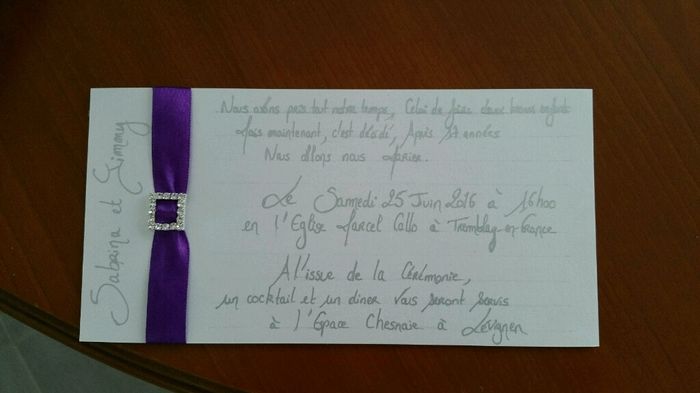 Sabrina et Jimmy
Nous avons pris tout notre temps, Celui de faire deux beaux enfants
Mais maintenant, c'est décidé, Après 17 années
Nous Allons nous Marier.
Le Samedi 25 Juin 2016 à 16h00
en l'Eglise Marcel Callo à Tremblay-en-France
A l'issue de la Cérémonie,
un cocktail et un diner vous seront servis
à l'Espace Chesnaie à Levignen